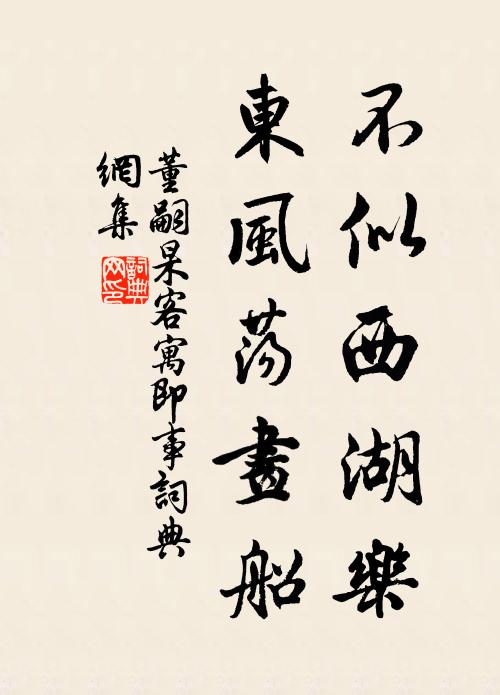 不似西湖樂
東風蕩畫船
董嗣杲客寓即事詞典
網集
詞典
网印